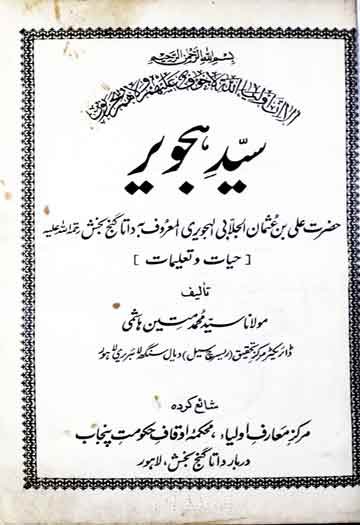 بسم الله الرحمن الرحيم
الا ان اولياء الله لا خوف عليهم ولا هم يحزنون
سیّدِ ہجویر
حضرت علی بن عثمان الجلابی الہجویری المعروف بہ داتا گنج بخش رحمۃ اللہ علیہ
[ حیات و تعلیمات ]
تالیف
مولانا سیّد محمد متین ہاشمی
ڈائریکٹر مرکز تحقیق (ریسرچ سیل) دیال سنگھ لائبریری لاہور
شائع کردہ
مرکز معارف اولیاء، محکمۂ اوقاف حکومت پنجاب
دربار داتا گنج بخش، لاہور